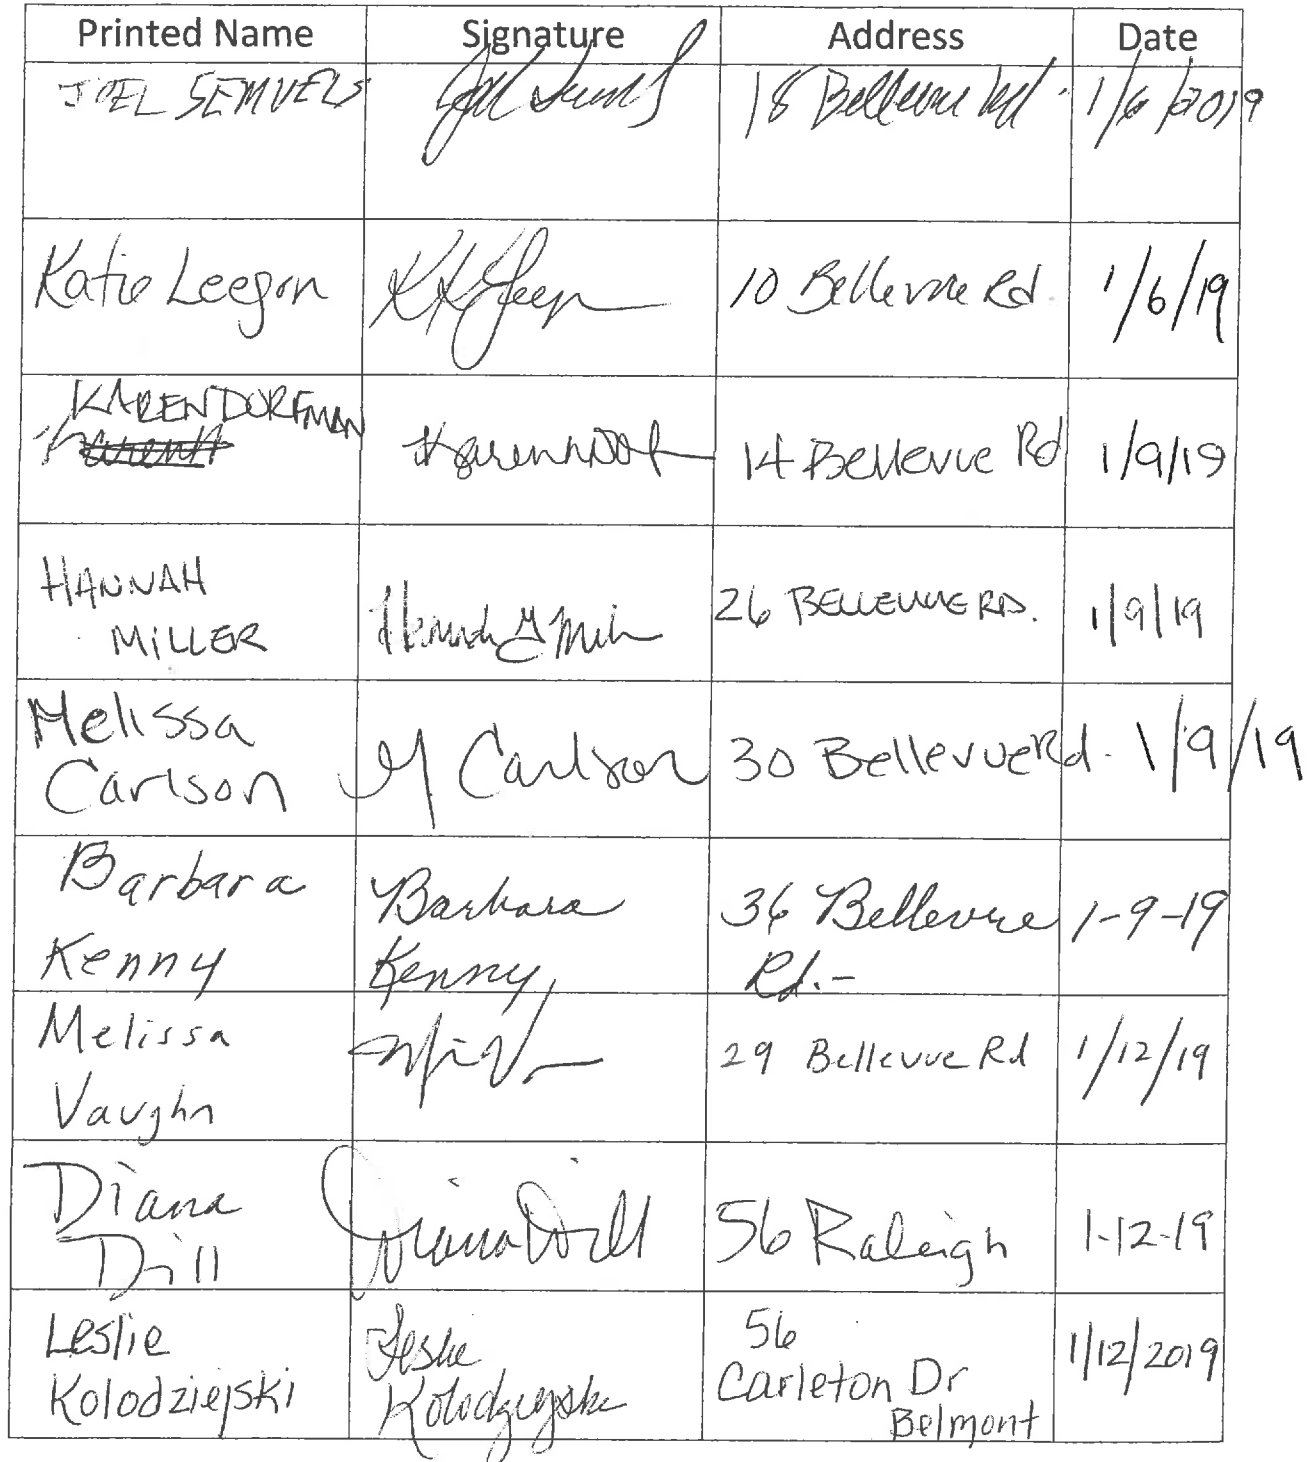 Printed Name Signature Address Date
JOEL SEMUELS 18 Bellevue Rd. 1/6/2019
Katie Leegon 10 Bellevue Rd. 1/6/19
KAREN DORFMAN
14 Bellevue Rd 1/9/19
HANNAH
MILLER
26 BELLEVUE RD. 1/9/19
Melissa
Carlson
M Carlson 30 Bellevue Rd. 1/9/19
Barbara
Kenny
Barbara
Kenny
36 Bellevue
Rd.-
1-9-19
Melissa
Vaughn
29 Bellevue Rd 1/12/19
Diana
Dill
Diana Dill 56 Raleigh 1-12-19
Leslie
Kolodziejski
Leslie
Kolodziejski
56
Carleton Dr
Belmont
1/12/2019